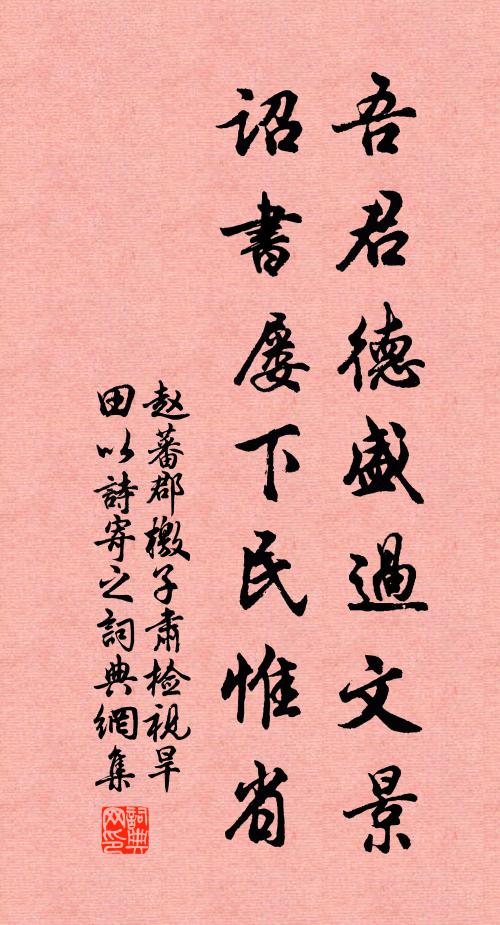 吾君德盛過文景
詔書屡下民惟省
赵蕃郡檄子肅檢視旱
田以詩寄之詞典網集
詞典
网印